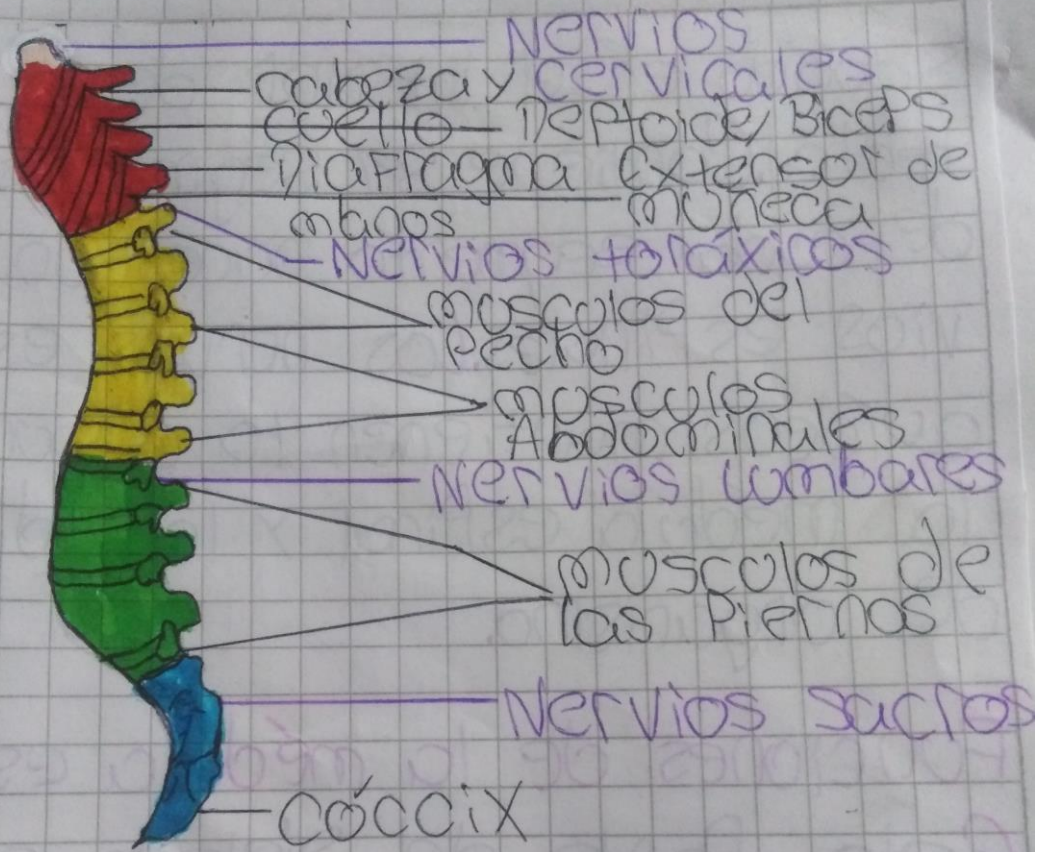 Nervios
cervicales
cabeza y
cuello
Deptoide, Biceps
Diafragma
Extensor de
muñeca
manos
Nervios toráxicos
musculos del
pecho
musculos
Abdominales
Nervios Lumbares
musculos de
las Piernas
Nervios sacros
cóccix